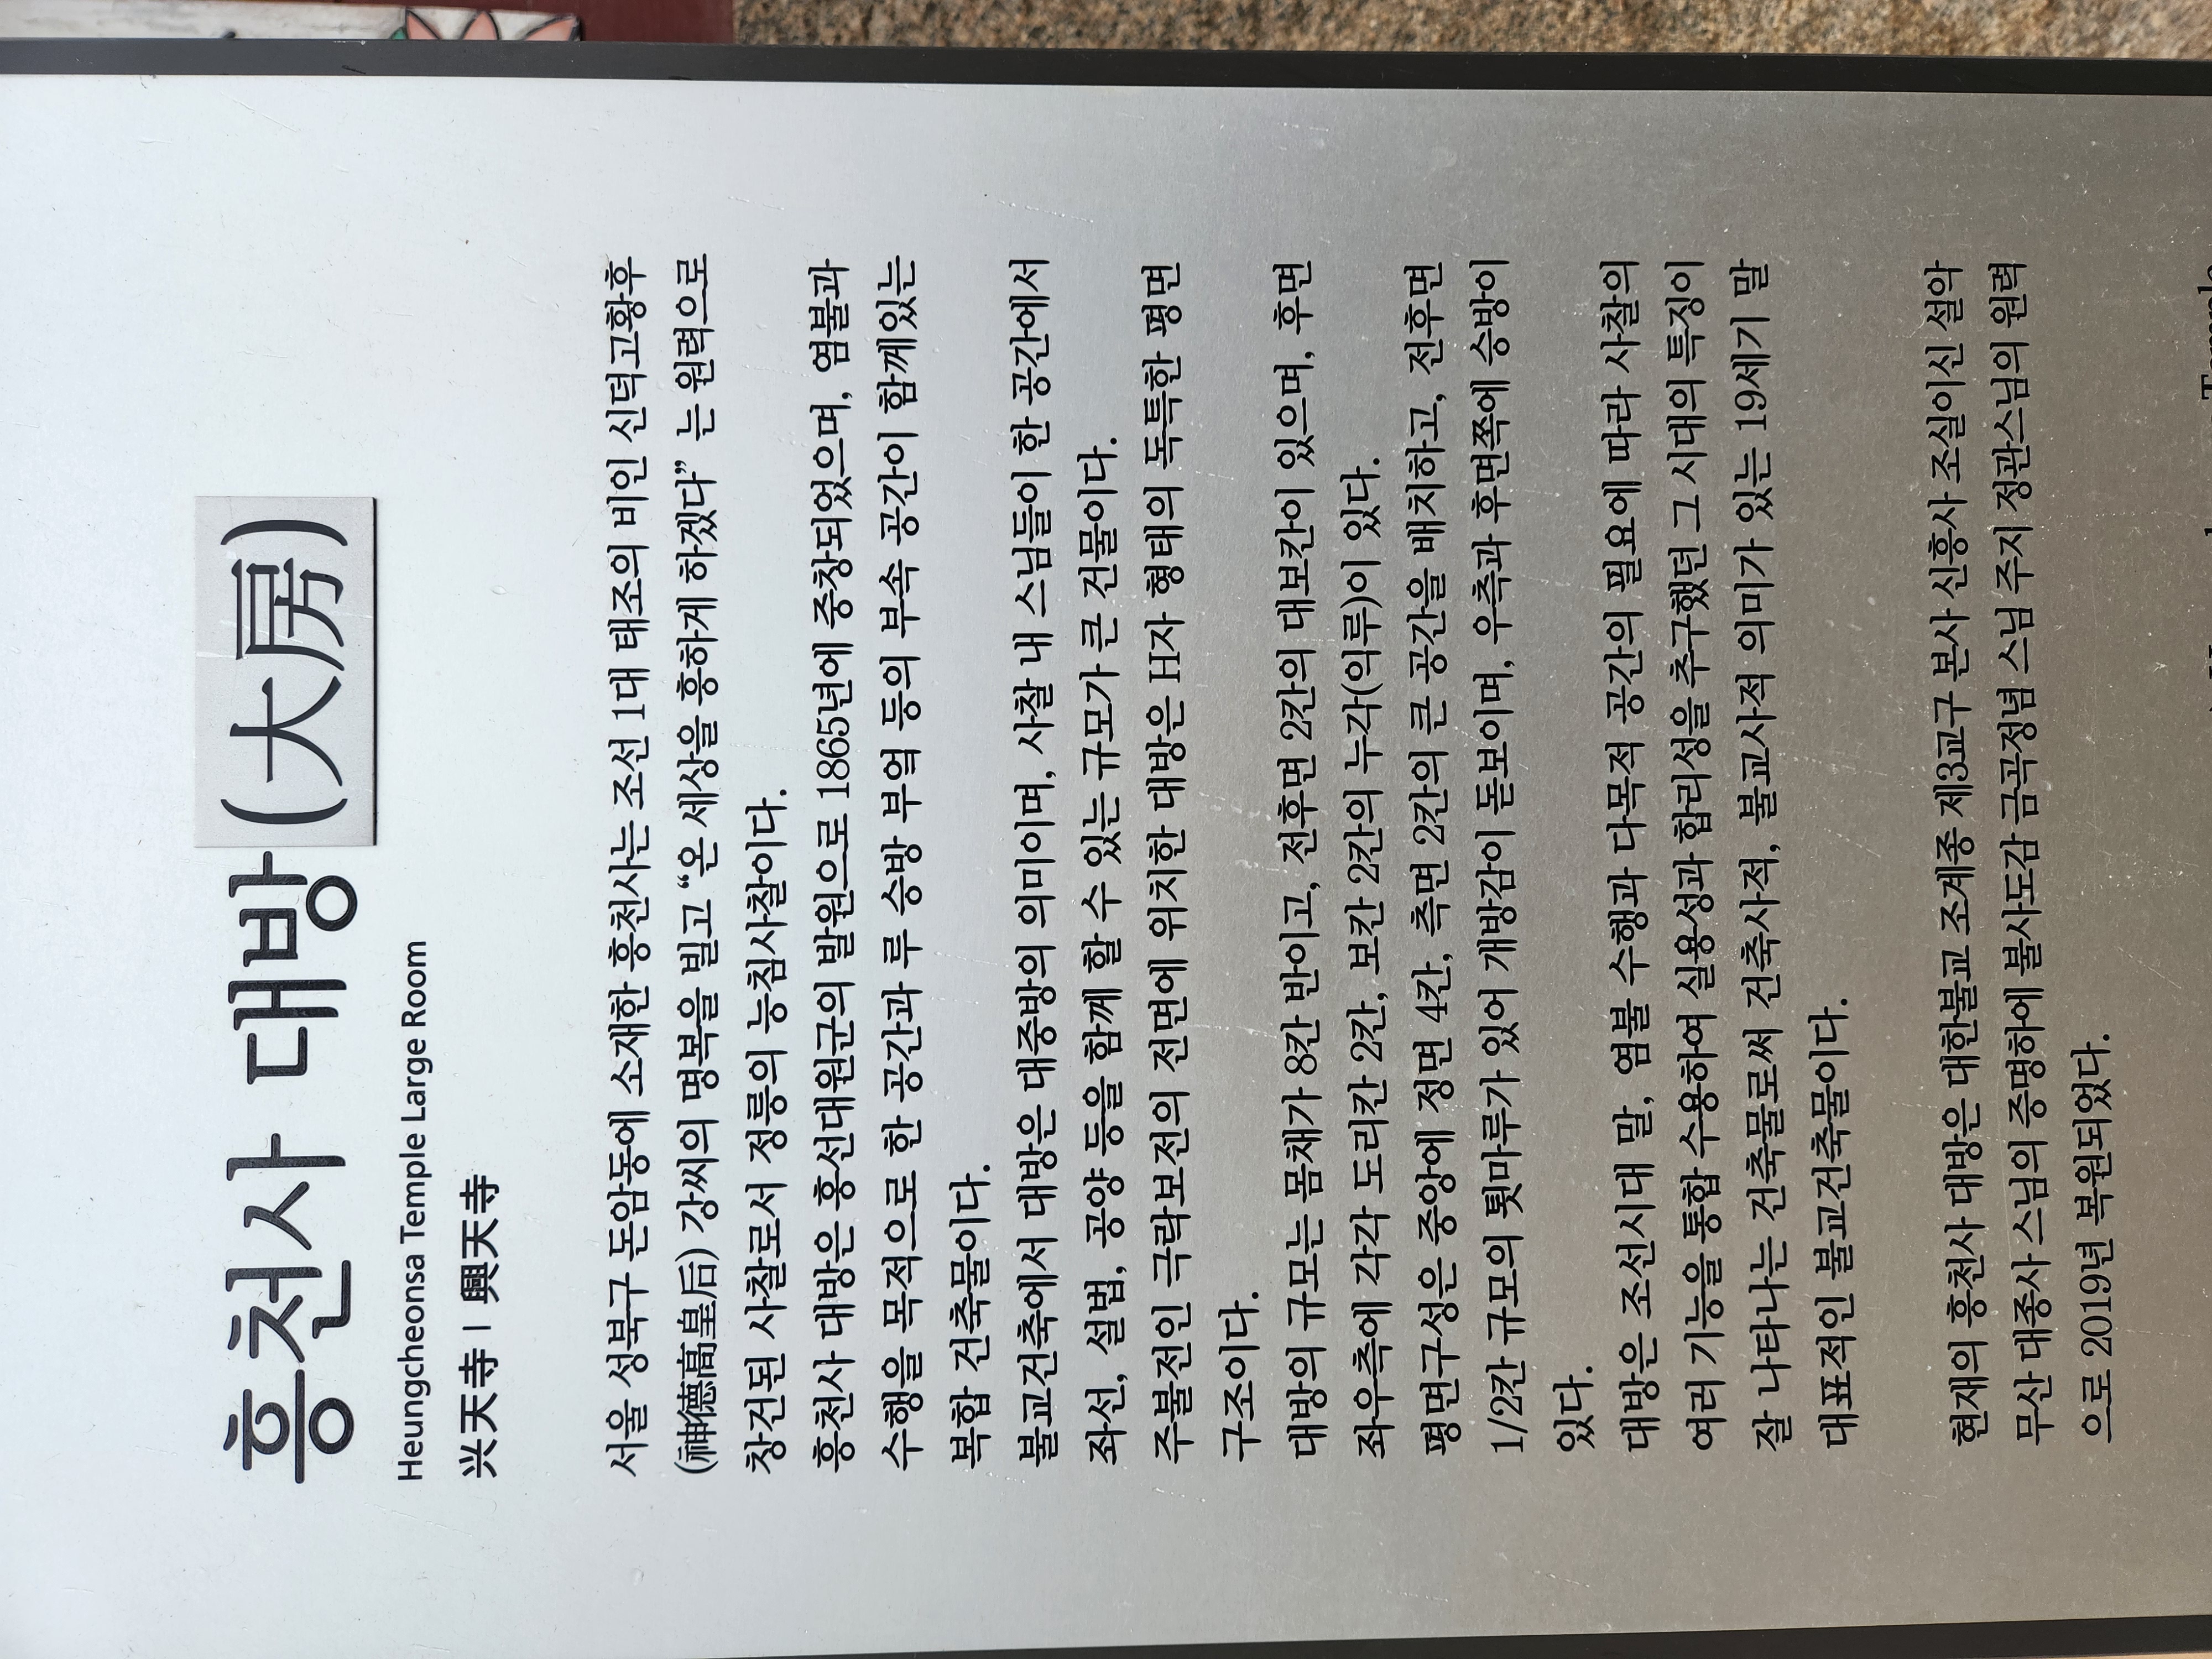 흥천사 대방(大房)
Heungcheonsa Temple Large Room
兴天寺 | 興天寺
서울 성북구 돈암동에 소재한 흥천사는 조선 1대 태조의 비인 신덕고황후
(神德高皇后) 강씨의 명복을 빌고 “온 세상을 흥하게 하겠다” 는 원력으로
창건된 사찰로서 정릉의 능침사찰이다.
흥천사 대방은 흥선대원군의 발원으로 1865년에 중창되었으며, 염불과
수행을 목적으로 한 공간과 루 승방 부엌 등의 부속 공간이 함께있는
복합 건축물이다.
불교건축에서 대방은 대중방의 의미이며, 사찰 내 스님들이 한 공간에서
좌선, 설법, 공양 등을 함께 할 수 있는 규모가 큰 건물이다.
주불전인 극락보전의 전면에 위치한 대방은 H자 형태의 독특한 평면
구조이다.
대방의 규모는 몸채가 8칸 반이고, 전후면 2칸의 대보칸이 있으며, 후면
좌우측에 각각 도리칸 2칸, 보칸 2칸의 누각(익루)이 있다.
평면구성은 중앙에 정면 4칸, 측면 2칸의 큰 공간을 배치하고, 전후면
1/2칸 규모의 툇마루가 있어 개방감이 돋보이며, 우측과 후면쪽에 승방이
있다.
대방은 조선시대 말, 염불 수행과 다목적 공간의 필요에 따라 사찰의
여러 기능을 통합 수용하여 실용성과 합리성을 추구했던 그 시대의 특징이
잘 나타나는 건축물로써 건축사적, 불교사적 의미가 있는 19세기 말
대표적인 불교건축물이다.
현재의 흥천사 대방은 대한불교 조계종 제3교구 본사 신흥사 조실이신 설악
무산 대종사 스님의 증명하에 불사도감 금곡정념 스님 주지 정관스님의 원력
으로 2019년 복원되었다.